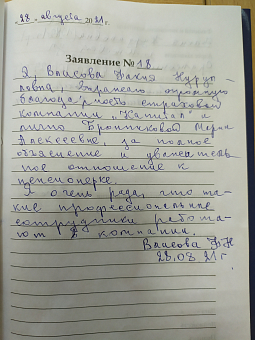 28. августа 2021г.
Заявление № 18
Я, Власова Факия Нурул-
ловна, выражаю огромную
благодарность страховой
компании "Капитал" и
лично Бронниковой Марии
Алексеевне, за полное
объяснение и уважитель
ное отношение к
пенсионерке.
Я очень рада, что та-
кие профессиональные
сотрудники работа-
ют в компании.
Власова Ф Н
28.08.21г